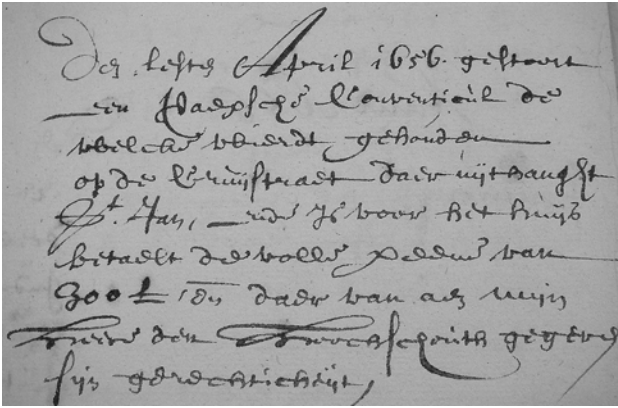 Den lesten April 1656 gestoort
een Paepsche Conventicul de
welcke wierdt gehouden
op de Cruijstraet daer uijthanght
St. Jan, ende Is voor het huijs
betaelt de volle peene van
300 £ en daer van aen mijn
Heere den Hoochschouth gegeven
sijn gerechticheijt,